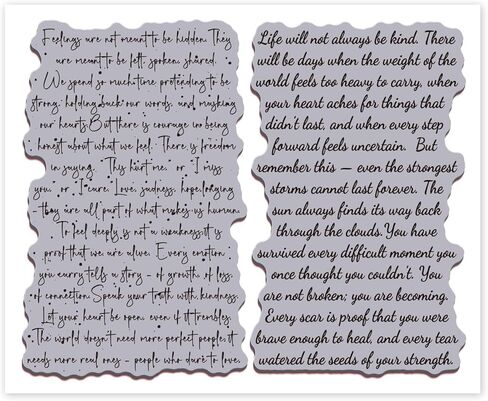 Feelings are not meant to be hidden. They
are meant to be felt, spoken, shared.
We spend so much time pretending to be
strong, holding back our words, and masking
our hearts.But there is courage inn being
honest about what we feel. There is freedom
in saying, "This hurt me," or "I miss
you," or "I care." Love, sadness, hope, longing
-they are all part of what makes us human.
To feel deeply is not a weakness,it is
proof that we are alive. Every emotion
you carry tells a story - of growth, of loss,
of connection. Speak your truth with kindness.
Let your heart be open, even if it trembles.
The world doesn't need more perfect people; it
needs more real ones - people who dare to love.
Life will not always be kind. There
will be days when the weight of the
world feels too heavy to carry, when
your heart aches for things that
didn't last, and when every step
forward feels uncertain. But
remember this — even the strongest
storms cannot last forever. The
sun always finds its way back
through the clouds.You have
survived every difficult moment you
once thought you couldn't. You
are not broken; you are becoming.
Every scar is proof that you were
brave enough to heal, and every tear
watered the seeds of your strength.